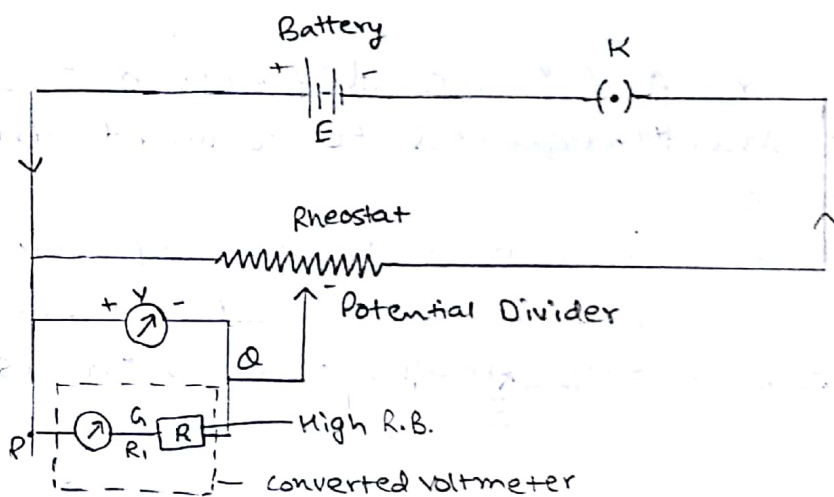 Battery
K
+ -
E
Rheostat
-
Potential Divider
+ V -
Q
G
R
High R.B.
P
R1
converted voltmeter